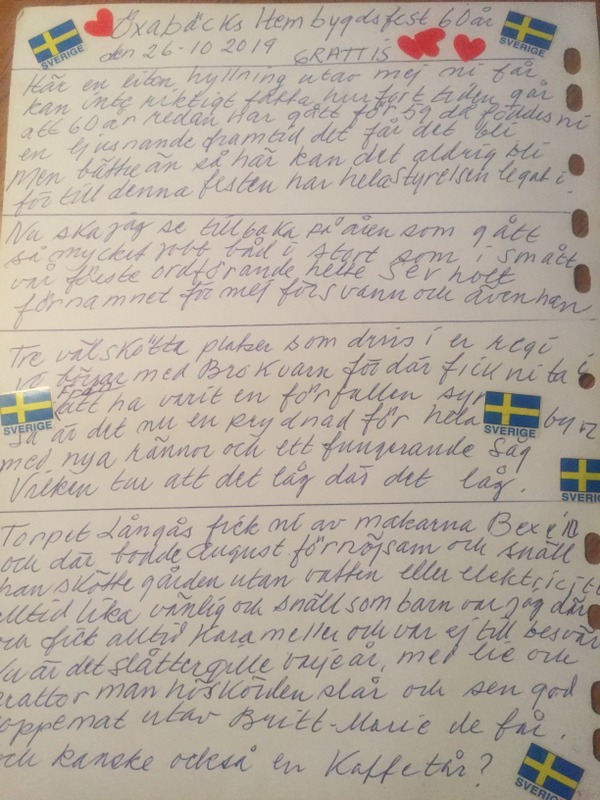 Öxabäcks Hembygdsfest 60 år
den 26-10 2019 GRATTIS
SVERIGE
SVERIGE
Här en liten hyllning utav mej ni får
kan inte riktigt fatta hur fort tiden går
att 60 år redan har gått för 59 då föddes ni
en ljusnande framtid det får det bli
Men bättre än så här kan det aldrig bli
för till denna festen har hela styrelsen legat i.
Nu ska jag se tillbaka på åren som gått
så mycket jobb båd i stort som i smått
vår förste ordförande hette Sev holt
förnamnet för mej försvann och även han
Tre välskötta platser som drivs i er regi
Vi börjar med Brokvarn för där fick ni ta i
Från att ha varit en förfallen syn
SVERIGE
SVERIGE
så är det nu en prydnad för hela byn
med nya rännor och ett fungerande såg
SVERIGE
Vilken tur att det låg där det låg.
Torpet Långås fick ni av makarna Bexell
och där bodde August förnöjsam och snäll
han skötte gården utan vatten eller elektricitet
alltid lika vänlig och snäll som barn var jag där
och fick alltid Karameller och var ej till besvär
Nu är det slåttergille varje år, med lie och
krattor man höskörden slår och sen god
soppemat utav Britt-Marie de får.
och kanske också en Kaffetår?
SVERIGE